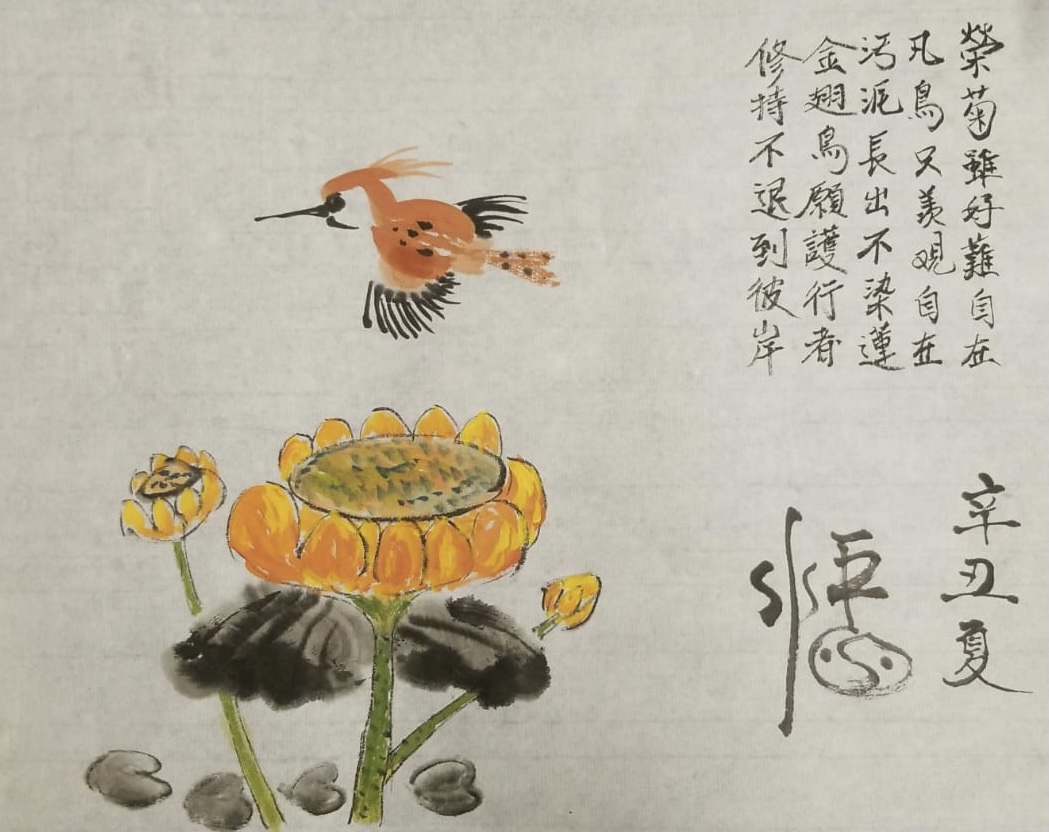 榮菊雖好難自在
凡鳥又羨觀自在
污泥長出不染蓮
金翅鳥願護行者
修持不退到彼岸
辛丑夏